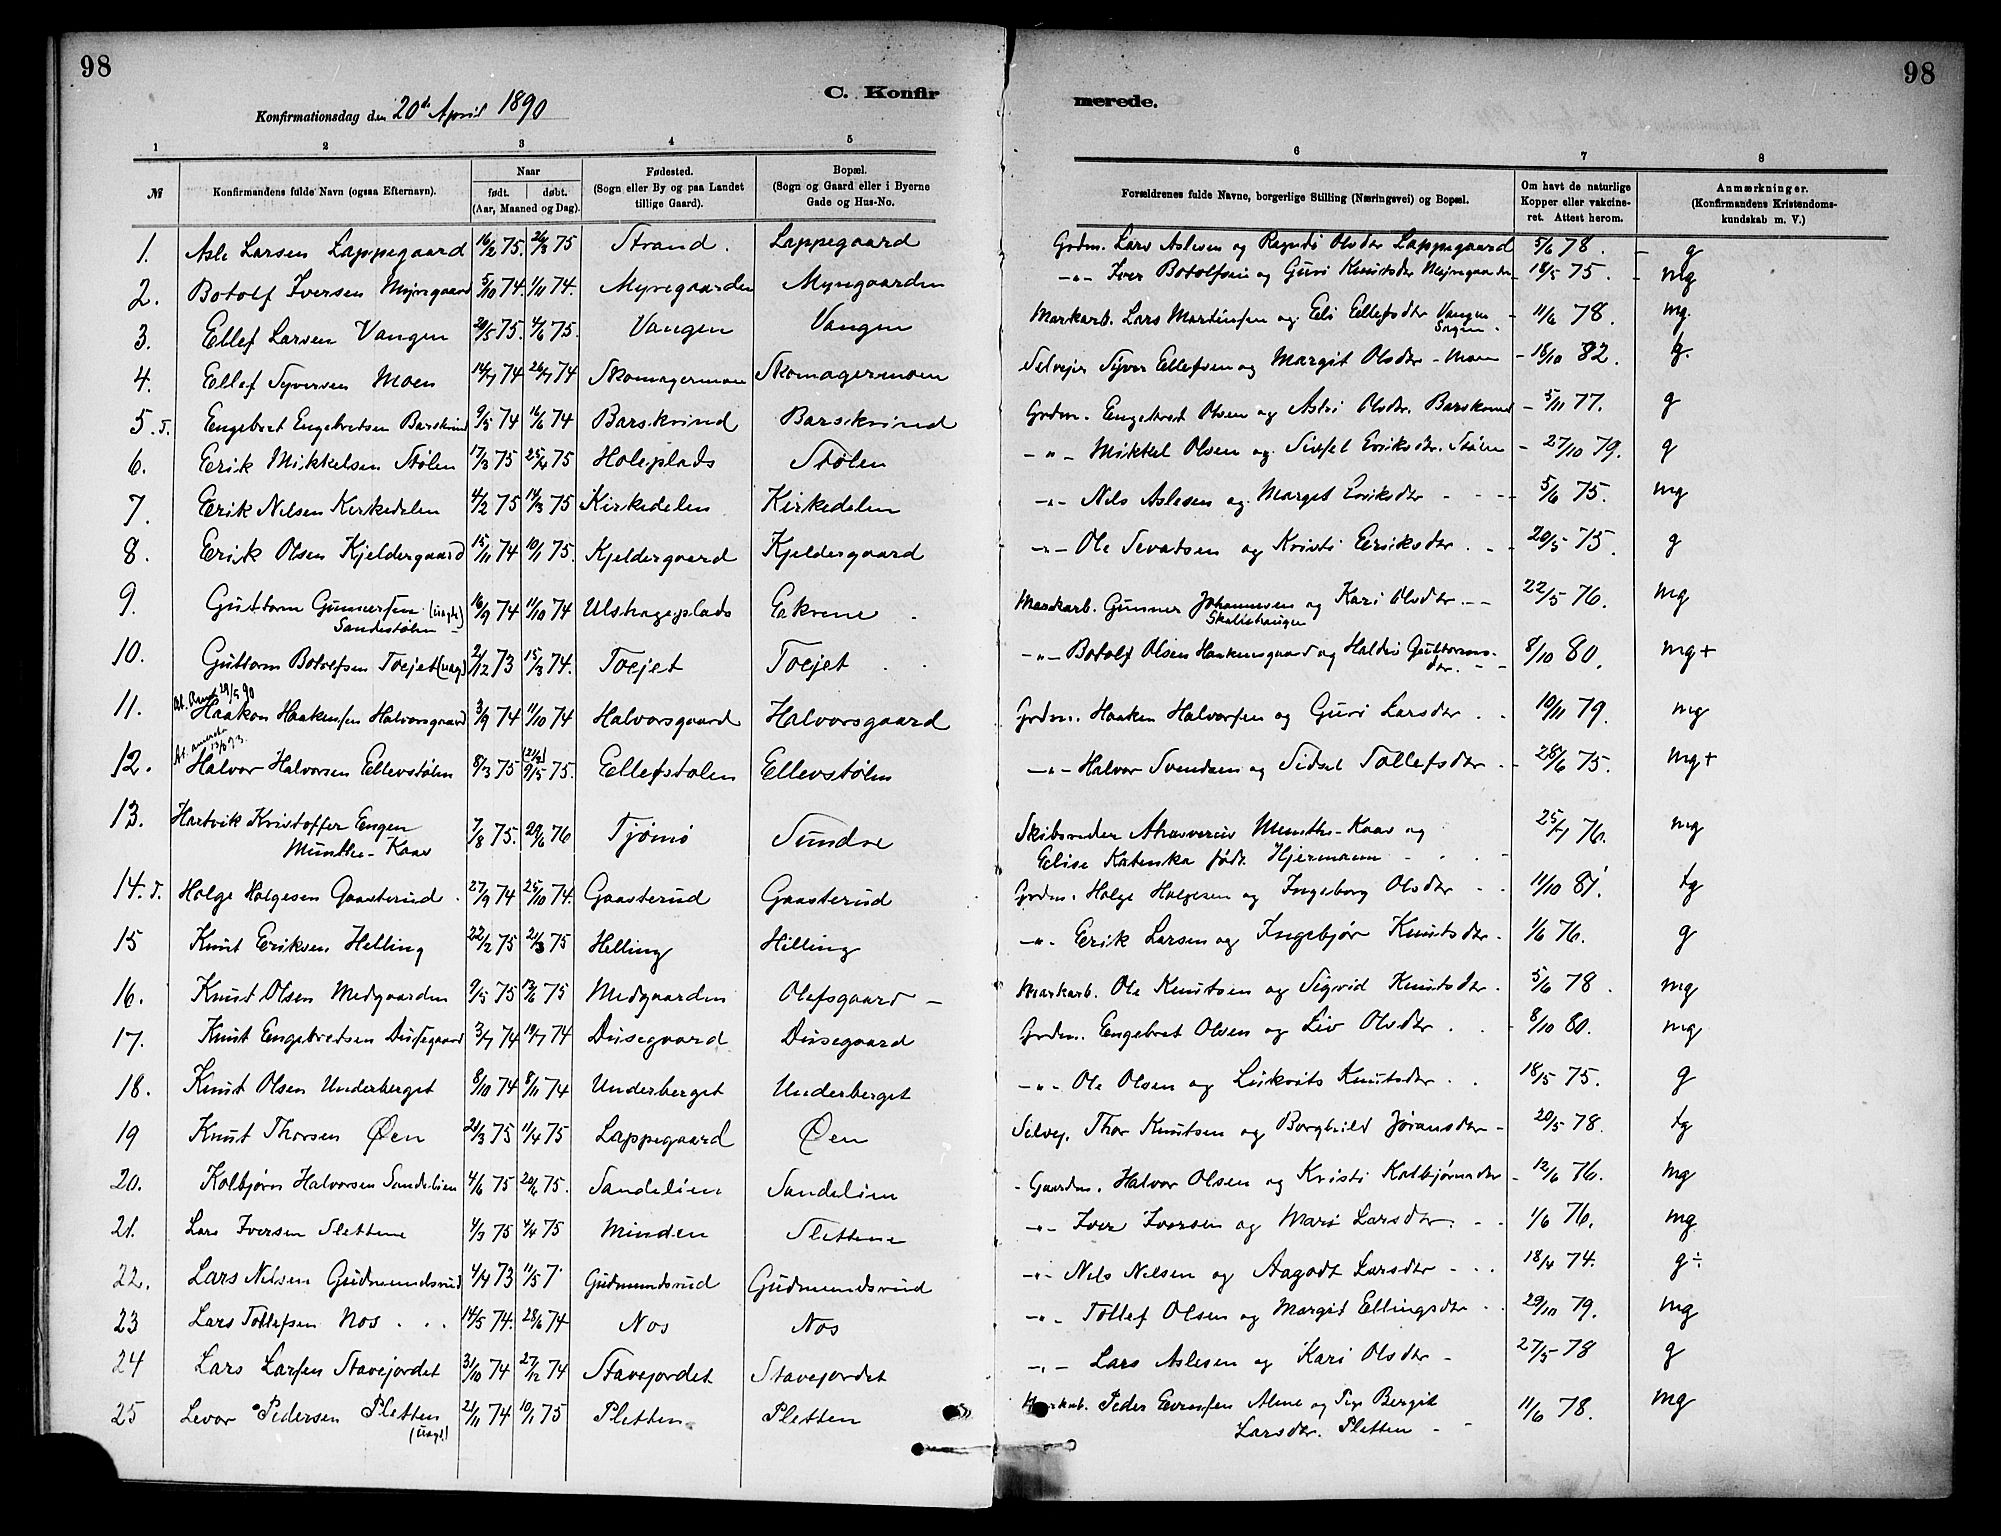 98
98
C. Konfir
merede.
Konfirmationsdag den 20de April 1890
1 2 3 4 5 6 7 8
№
Konfirmandens fulde Navn (ogsaa Efternavn).
Naar
født. døbt.
(Aar, Maaned og Dag).
Fødested.
(Sogn eller By og paa Landet
tillige Gaard).
Bopæl.
(Sogn og Gaard eller i Byerne
Gade og Hus-No.
Forældrenes fulde Navne, borgerlige Stilling (Næringsvei) og Bopæl.
Om havt de naturlige
Kopper eller vakcine-
ret. Attest herom.
Anmærkninger.
(Konfirmandens Kristendoms-
kundskab m. V.)
1. Asle Larsen Lappegaard 16/2 75. 21/3 75 Strand. Lappegaard Grdm. Lars Aslesen og Ragndi Olsdtr Lappegaard 5/6 78. g
2. Botolf Iversen Myregaard 5/10 74. 1/11 74. Myregaarden Myregaarden -"- Iver Botolfsen og Guri Knutsdtr Myregaarden 18/5 75. mg
3. Ellef Larsen Vangen 20/5 75. 4/6 75. Vangen Vangen Markarb. Lars Martinsen og Eli Ellefsdtr Vangen 11/6 78. mg.
4. Ellef Syversen Moen 14/7 74 26/7 74 Skomagermoen Skomagermoen Selvejer Syver Ellefsen og Margit Olsdtr - Moen - 18/10 82. g.
5. T. Engebret Engebretsen Barskrind 9/5 74 14/6 74 Barskrind Barskrind Grdm. Engebret Olsen og Astri Olsdtr. Barskrind - 5/11 77. g
6. Erik Mikkelsen Stølen 17/3 75 25/4 75 Holeplads Stølen -"- Mikkel Olsen og Sissel Eriksdtr. Stølen - 27/10 79. g
7. Erik Nilsen Kirkedelen 4/2 75 14/3 75 Kirkedelen Kirkedelen -"- Nils Aslesen og Marget Eriksdtr 5/6 75. mg
8. Erik Olsen Kjeldergaard 15/11 74 10/1 75. Kjeldergaard Kjeldergaard -"- Ole Sevatsen og Kristi Eriksdtr 20/5 75. g
9. Guttorm Gunnersen (uægte) 16/9 74 11/10 74 Ulshageplads Ekrene Markarb. Gunner Johannesen og Kari Olsdtr 22/5 76. mg
Sandestølen Skalishaugen
10. Guttorm Botolfsen Toejet (uæg) 2/12 73 15/3 74. Toejet Toejet -"- Botolf Olsen Haakensgaard og Haldis Guttorms- 8/10 80. mg+
dtr.
11. Haakon Haakensen Halvorsgaard 3/9 74 11/10 74 Halvorsgaard Halvorsgaard Grdm. Haaken Halvorsen og Guri Larsdtr 10/11 79. mg
12. Halvor Halvorsen Ellevstølen 8/3 75 9/5 75. Ellefstølen Ellevstølen -"- Halvor Svendsen og Sidsel Tollefsdtr 28/6 75. mg+
13. Hartvik Kristoffer Engen 7/8 75. 29/6 76 Tjømø Sundre Skibsreder Ahasverius Munthe-Kaas og 25/7 76. mg
Munthe-Kaas Elise Katinka født Hjermann
14. T. Holge Holgesen Gaasterud 27/9 74 25/10 74. Gaasterud Gaasterud Grdm. Holge Holgesen og Ingeborg Olsdtr 11/10 81. tg
15 Knut Eriksen Helling 22/2 75 21/3 75 Helling Hilling -"- Erik Larsen og Ingebjør Knutsdtr 1/6 76. g
16. Knut Olsen Medgaarden 9/5 75 13/6 75 Medgaarden Olefsgaard - Markarb. Ole Knutsen og Sigrid Knutsdtr 5/6 78. mg
17. Knut Engebretsen Dusegaard 3/7 74 19/7 74 Dusegaard Dusegaard Grdm. Engebret Olsen og Liv Olsdtr 8/10 80. mg
18. Knut Olsen Underberget 8/10 74 8/11 74 Underberget Underberget -"- Ole Olsen og Knutsdtr 18/5 75. g
19 Knut Thorsen Øen 21/3 75 11/4 75 Lappegaard Øen Selvej. Thor Knutsen og Borghild Jøransdtr - 20/5 78. tg
20. Kolbjørn Halvorsen Sandelien 4/6 75 20/6 75. Sandelien Sandelien Gaardm. Halvor Olsen og Kristi Kolbjørnsdtr 12/6 76. mg
21. Lars Iversen Slettene 4/3 75 4/4 75 Minden Slettene -"- Iver Iversen og Mari Larsdtr. 1/6 76. mg
22. Lars Nilsen Gudmundsrud 4/4 73 11/5 7' Gudmundsrud Gudmundsrud -"- Nils Nilsen og Aagodt Larsdtr 18/4 74. g÷
23 Lars Tollefsen Nos 14/5 74. 28/6 74 Nos Nos -"- Tollef Olsen og Margit Ellingsdtr 29/10 79. mg
24 Lars Larsen Stavejordet 31/10 74 27/12 74 Stavejordet Stavejordet -"- Lars Aslesen og Kari Olsdtr - 27/5 78 g
25 Levor Pedersen Pletten 21/11 74 10/1 75 Pletten Pletten Markarb. Peder Alme og Pige Bergit 11/6 78. mg
(uægte) Larsdtr. Pletten -